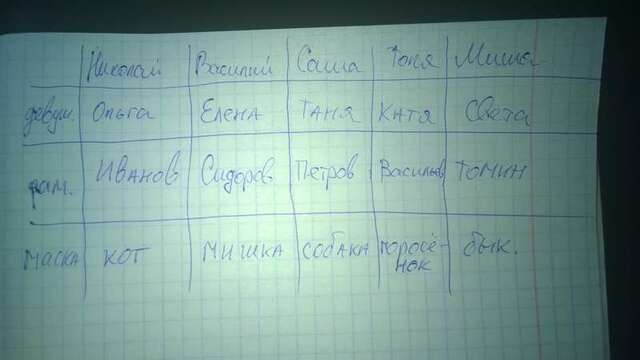 Николай Василий Саша Толя Миша
девуш. Ольга Елена Таня Катя Света
фам. Иванов Сидоров Петров Васильев Томин
маска кот мишка собака поросё-
нок бык.